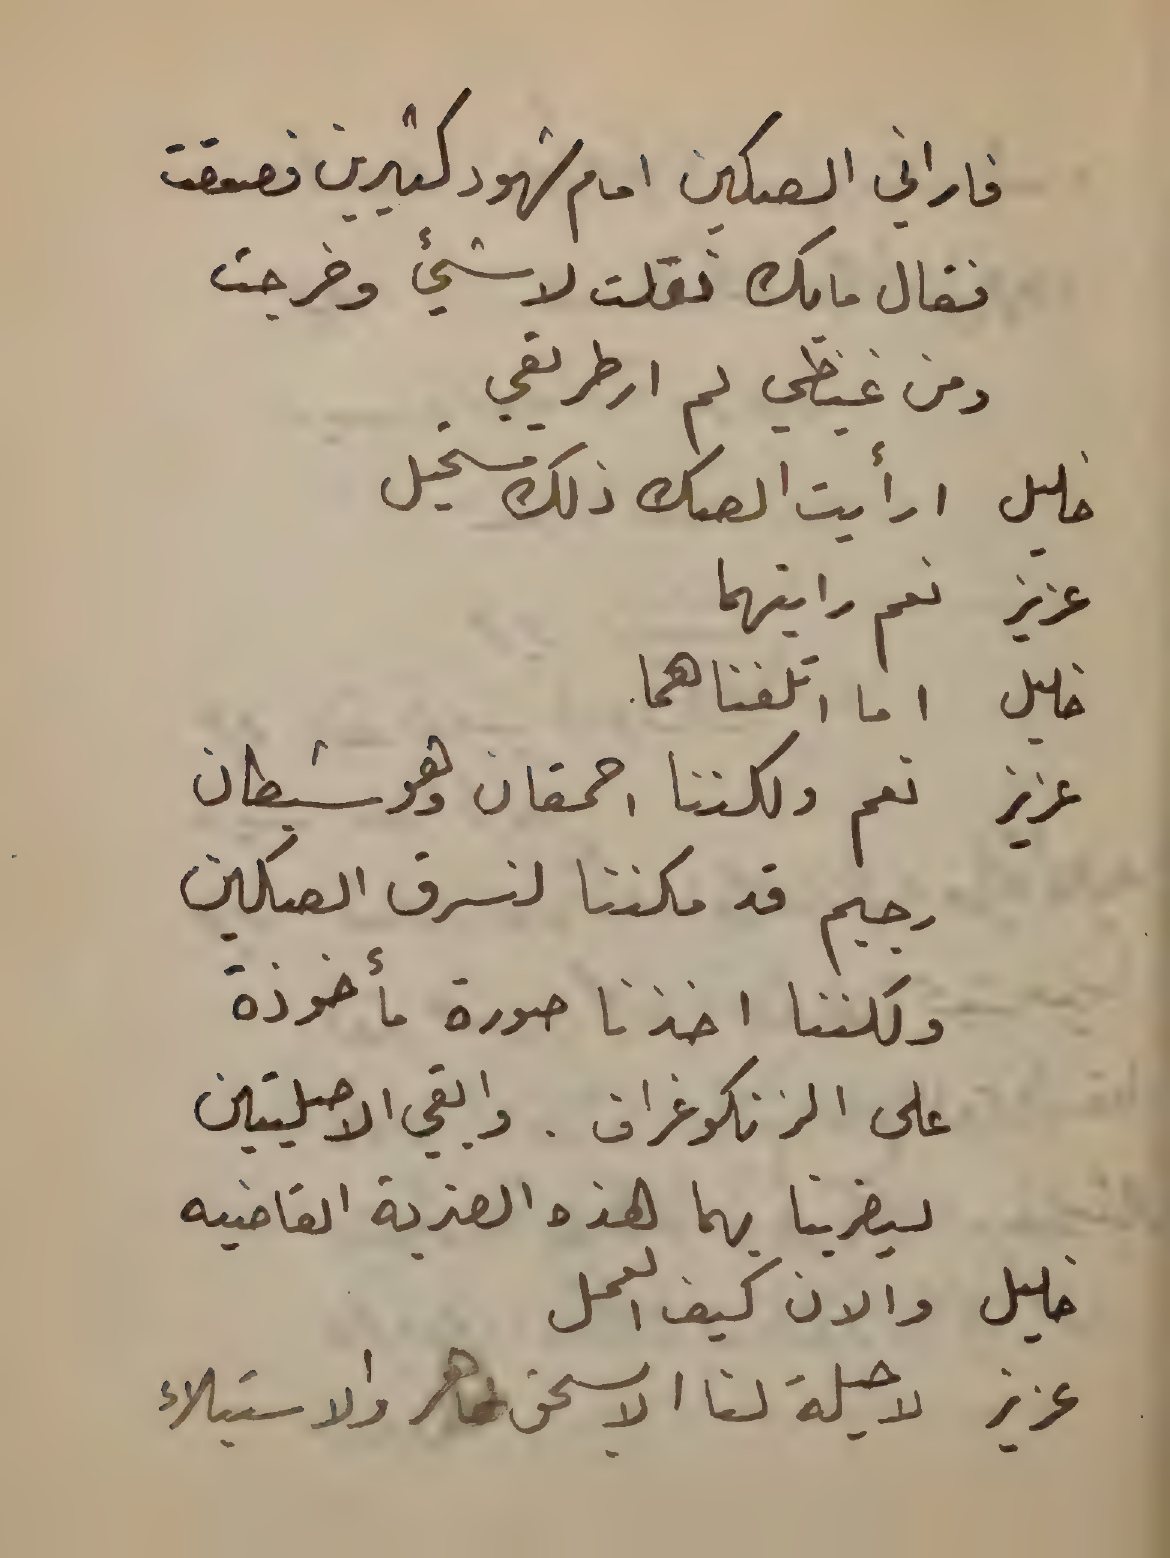 فاراني الصكين امام شهود كثيرين فصعقت
فقال مابك فقلت لا شيئ وخرجت
ومن غيظي لم ار طريقي
خليل ارأيت الصك ذلك مستحيل
عزيز نعم رايتهما
خليل اما اتلفناهما.
عزيز نعم ولكننا احمقان وهو شيطان
رجيم قد مكننا لنسرق الصكين
ولكننا اخذنا صورة مأخوذة
على الزنكوغراف . وابقي الاصليتين
ليضربنا بهما هذه الضربة القاضيه
خليل والان كيف العمل
عزيز لا حيلة لنا الا سحق ماهر والاستيلاء